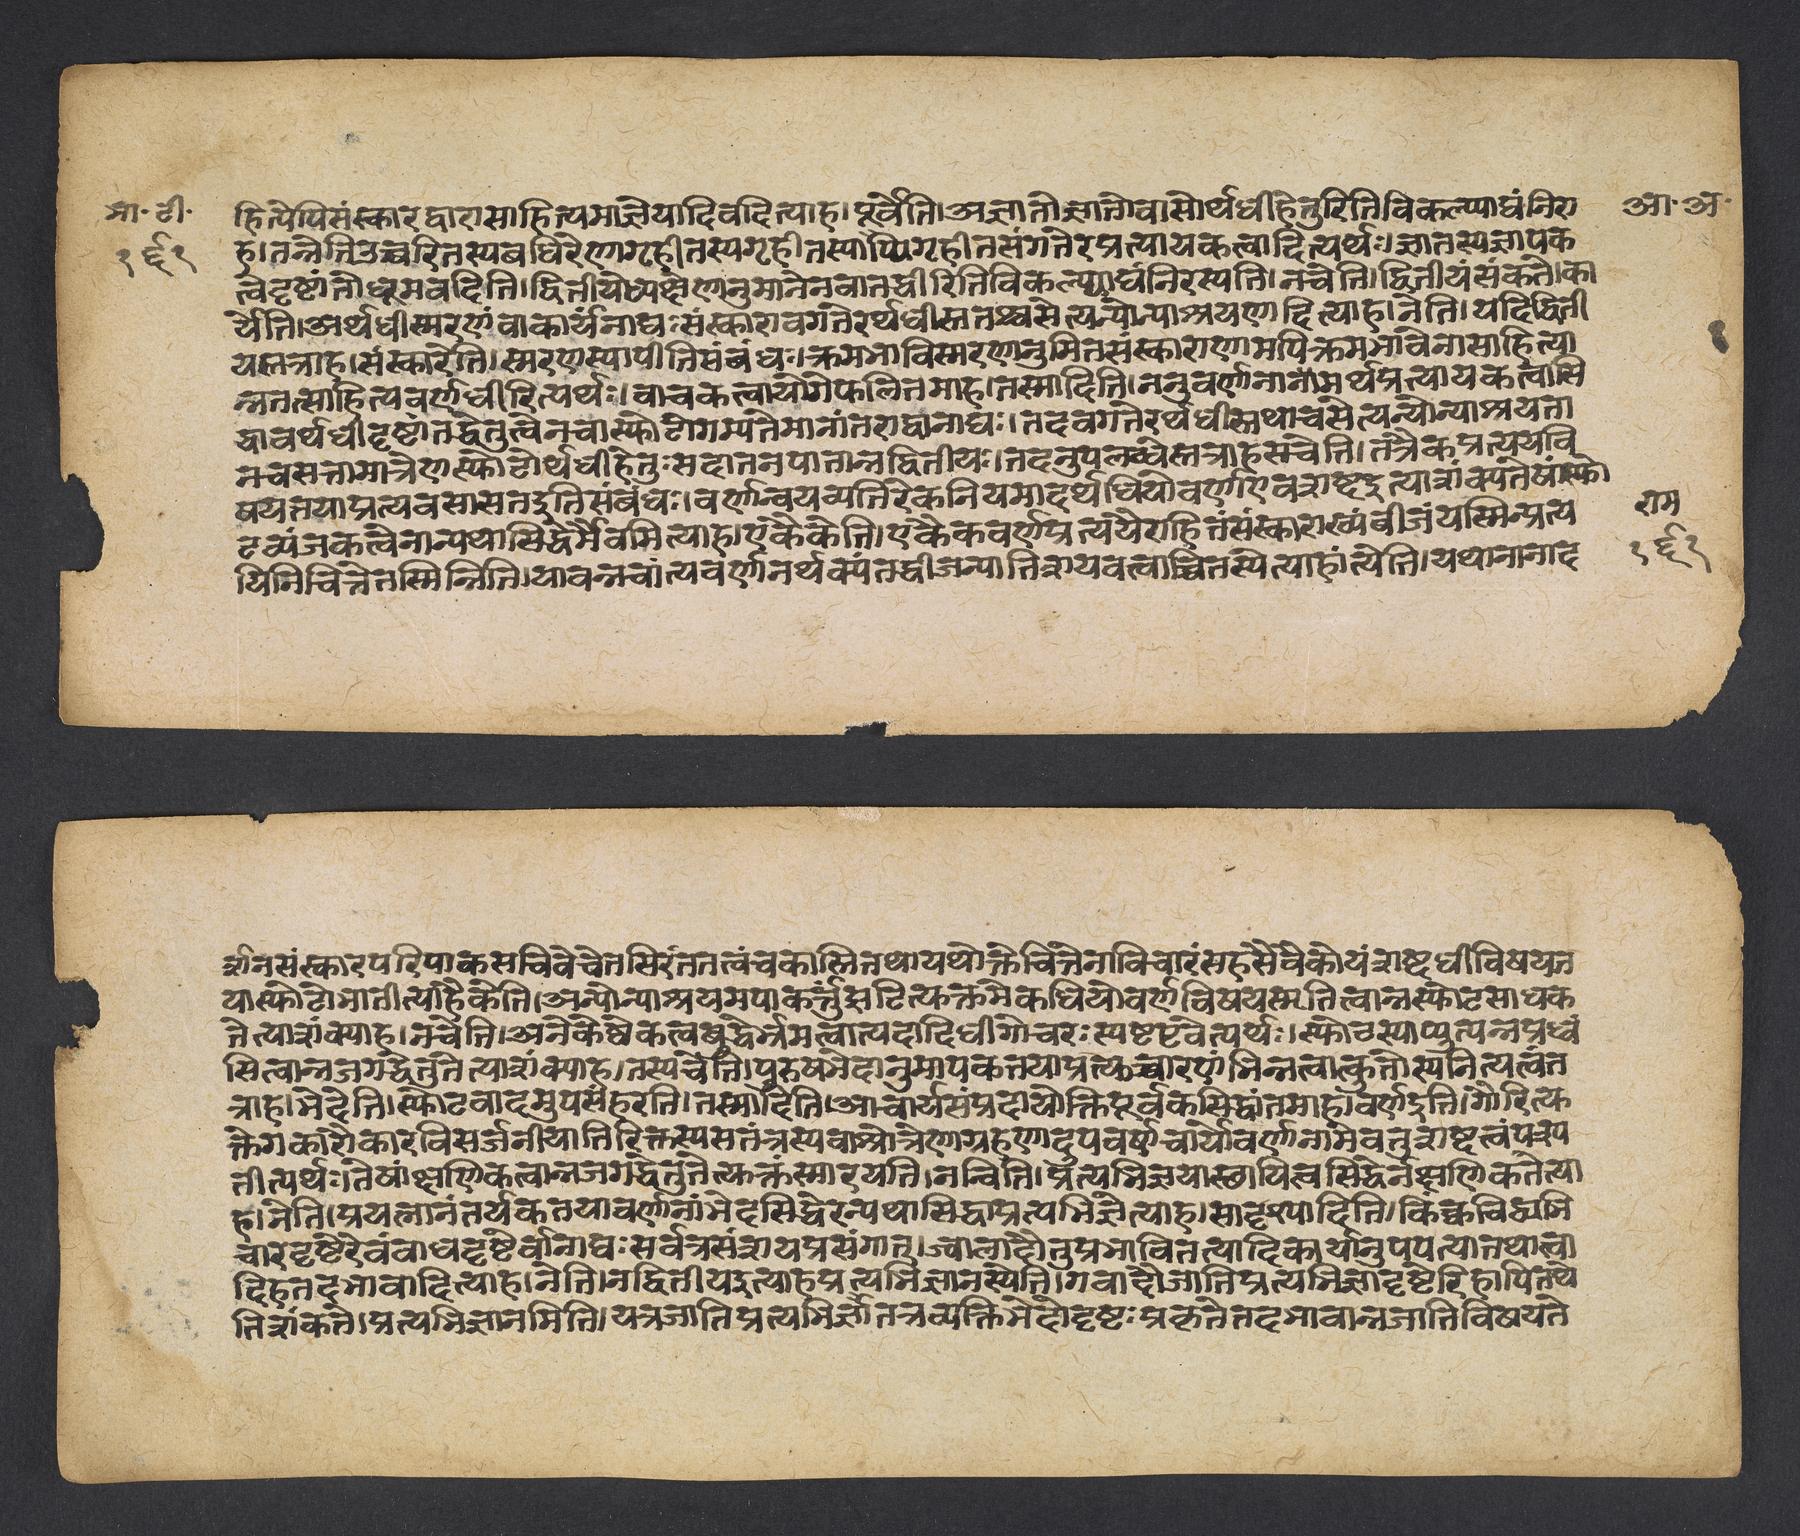 भा॰ टी॰
१६१
आ॰ अ॰
हित्येपिसंस्कारद्वारासाहित्यमाग्नेयादिवदित्याह। पूर्वेति। अज्ञातोज्ञातोवासोर्थधीहेतुरितिविकल्प्याद्यंनिरा
ह। तन्नेतिउच्चरितस्यबधिरेणागृहीतस्यगृहीतस्याप्यगृहीतसंगतेरप्रत्यायकत्वादित्यर्थः। ज्ञातस्यज्ञापक
त्वेदृष्टांतोधूमवदिति। द्वितीयेध्यक्षेणानुमानेनवातद्धीरितिविकल्प्याद्यंनिरस्यति। नचेति। द्वितीयंसंकते। का
र्येति। अर्थधीस्मरणंवाकार्यंनाद्यःसंस्कारावगतेरर्थधीस्ततश्चसेत्यन्योन्याश्रयणादित्याह। नेति। यदिद्विती
यस्तत्राह। संस्कारेति। स्मरणस्यापीतिसंबंधः। क्रमभाविस्मरणानुमितसंस्काराणामपिक्रमभावेनासाहित्या
न्नतत्साहित्यवर्णधीरित्यर्थः। वाचकत्वायोगेफलितमाह। तस्मादिति। ननुवर्णानानामर्थप्रत्यायकत्वासि
द्धावर्थधीदृष्टांतद्धेतुत्वेनचास्फोटोगम्यतेमानांतराद्वानाद्यः। तदवगतेरर्थधीस्तथाचसेत्यन्योन्याश्रयता
नचसत्तामात्रेणस्फोटोर्थधीहेतुःसदातनपातान्नद्वितीयः। तदनुपलब्धेस्तत्राहसचेति। तत्रैकप्रत्ययवि
षयतयाप्रत्यवसासतइतिसंबंधः। वर्णान्वयव्यतिरेकनियमादर्थधियोवर्णाएवशब्दइत्याशंक्यतेषांस्फो
टव्यंजकत्वेनान्यथासिद्धेर्मैवमित्याह। एकैकेति। एकैकवर्णप्रत्ययैराहितंसंस्काराख्यंबीजंयस्मिन्प्रत्य
यिनिचित्तेतस्मिन्निति। यावन्नचांत्यवर्णेनर्थक्यंतद्धीजन्यातिशयवत्वाच्चितस्येत्याहांत्येति। यथानानाद
राम
१६१
र्शनसंस्कारपरिपाकसचिवेचेतसिरंतनत्वंचकास्तितथायथोक्तेचित्तेनाविचारंसहसैवैकोयंशब्दधीविषयत
यास्फोटोभातीत्याहैकेति। अन्योन्याश्रयमपाकर्त्तुंझटित्यक्तमेकधियोवर्णविषयस्मृतित्वान्नस्फोटसाधक
तेत्याशंक्याह। नचेति। अनेकेष्वेकत्वबुद्धेर्भ्रमत्वात्पदादिधीगोचरःस्पष्टएवेत्यर्थः। स्फोटस्याप्युत्पन्नप्रध्वं
सित्वान्नजगद्धेतुतेत्याशंक्याह। तस्यचेति। पुरुषभेदानुमापकतयाप्रत्यच्चारणंभिन्नत्वात्कुतोस्यनित्यत्वंत
त्राह। भेदेति। स्फोटवादमुपसंहरति। तस्मादिति। आचार्यसंप्रदायोक्तिपूर्वकसिद्धांतमाह। वर्णइति। गौरित्य
क्तेगकारौकारविसर्जनीयातिरिक्तस्यसतंत्रस्यवाश्रोत्रेणाग्रहणादुपवर्षाचार्योवर्णानामेवतुशब्दत्वंपश्य
तीत्यर्थः। तेषांक्षणिकत्वान्नजगद्धेतुतेत्यक्तंस्मारयति। नन्विति। प्रत्यभिज्ञयास्थायित्वसिद्धेर्नक्षणिकतेत्या
ह। नेति। प्रयत्नानंतर्यकतयावर्णानांभेदसिद्धेरन्यथासिद्धाप्रत्यभिज्ञेत्याह। सादृश्यादिति। किंक्वचिद्व्यभि
चारदृष्टेरेवंबाधदृष्टेर्वानाद्यःसर्वत्रसंशयप्रसंगात्। ज्वालादौतुप्रभावितत्यादिकार्यानुपपत्यातथात्वा
दिहतदभावादित्याह। नेति। नद्वितीयइत्याहप्रत्यभिज्ञानस्येति। गवादौजातिप्रत्यभिज्ञादृष्टेरिहापितथे
तिशंकते। प्रत्यभिज्ञानमिति। यत्रजातिप्रत्यभिज्ञातत्रव्यक्तिभेदोदृष्टःप्रकृतेतदभावान्नजातिविषयते